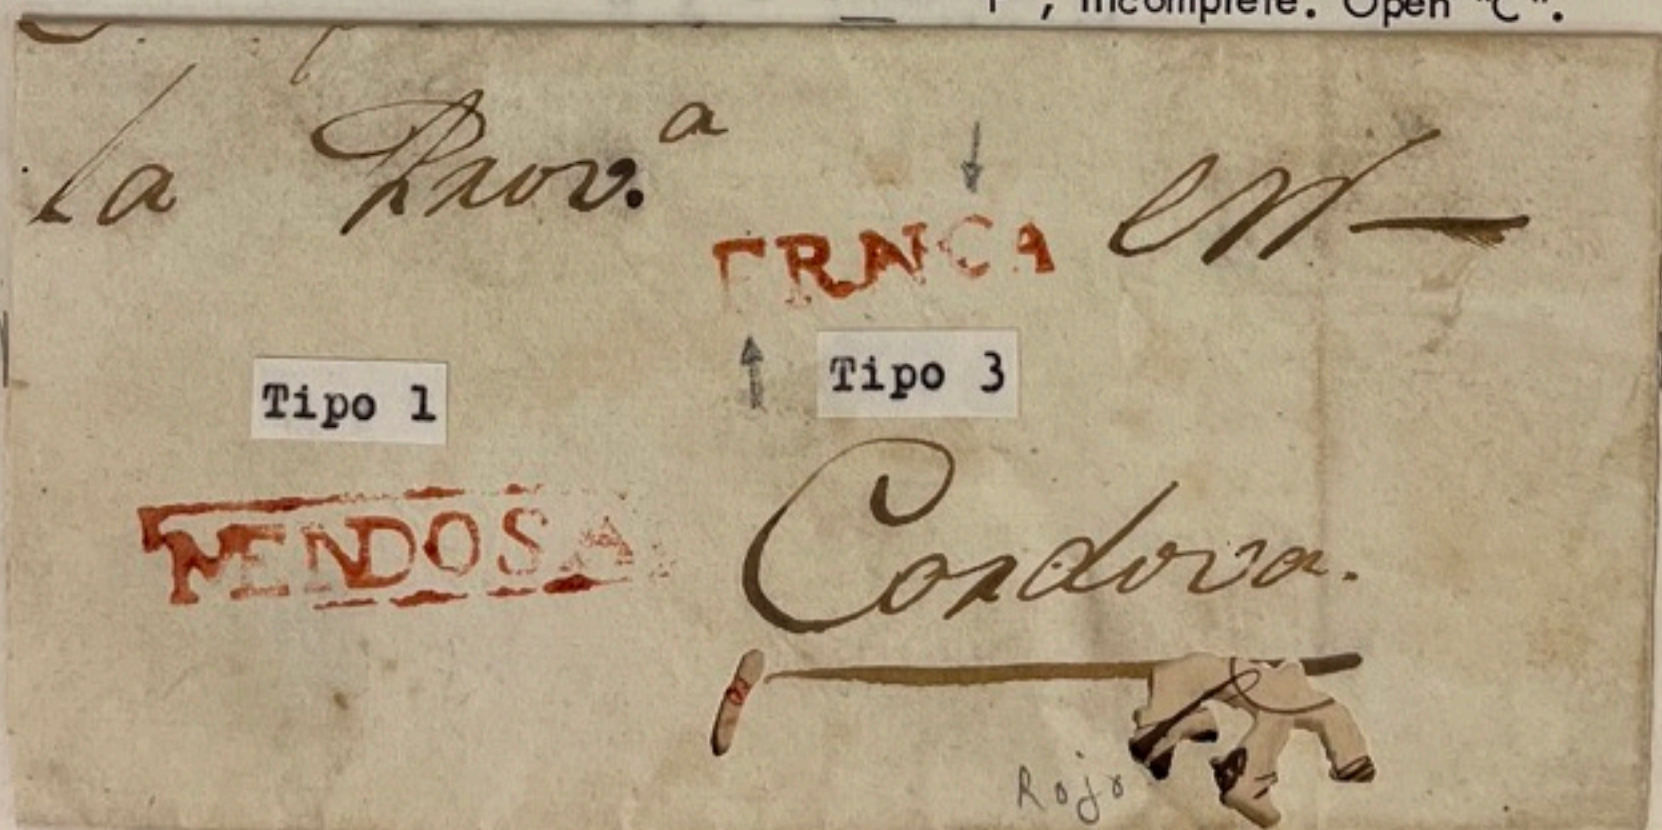 , incomplete. Open "C".
la Prov.a en
FRNCA
Tipo 1
Tipo 3
MENDOSA
Cordova.
Rojo